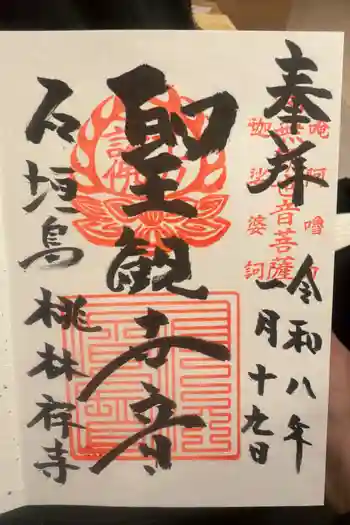 奉拝
令和八年
一月十九日
唵阿嚕力
音菩薩
沙婆訶
聖観世音
石垣島 桃林禅寺